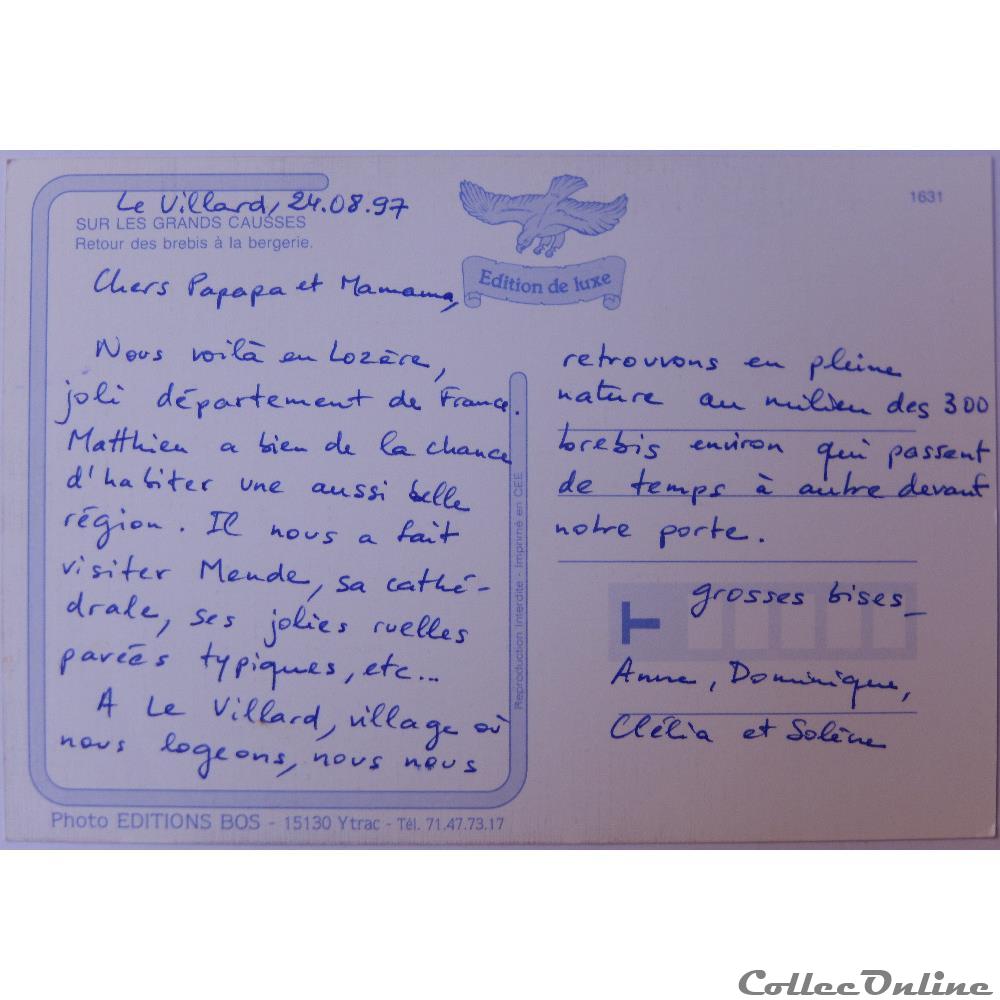 1631
Le Villard, 24.08.97
SUR LES GRANDS CAUSSES
Retour des brebis à la bergerie.
Edition de luxe
Chers Papapa et Mamama,
Nous voilà en Lozère,
joli département de France.
Matthieu a bien de la chance
d'habiter une aussi belle
région. Il nous a fait
visiter Mende, sa cathé-
drale, ses jolies ruelles
pavées typiques, etc...
A Le Villard, village où
nous logeons, nous nous
retrouvons en pleine
nature au milieu des 300
brebis environ qui passent
de temps à autre devant
notre porte.
grosses bises_
Anne, Dominique,
Clélia et Solène
T
Reproduction Interdite - Imprimé en CEE
Photo EDITIONS BOS - 15130 Ytrac - Tél. 71.47.73.17
CollecOnline